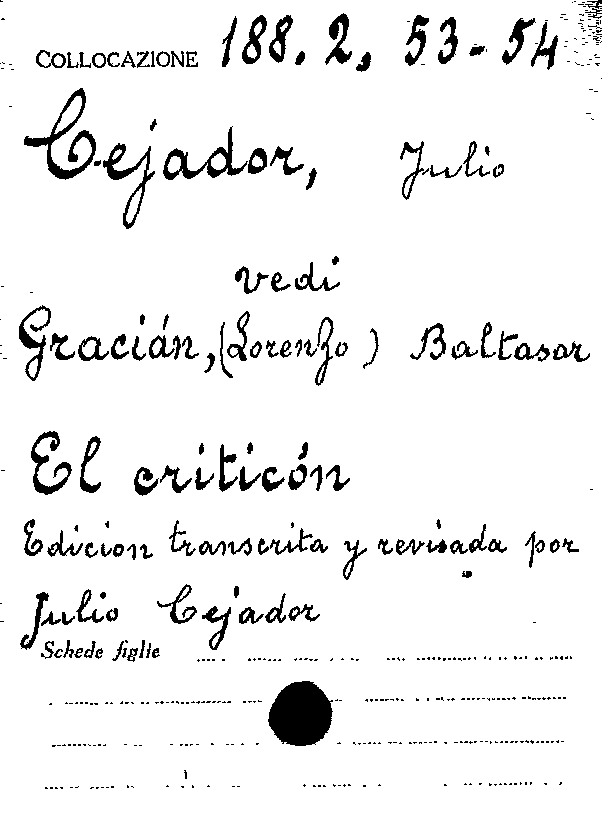 COLLOCAZIONE 188.2, 53-54
Cejador, Julio
vedi
Gracián, (Lorenzo) Baltasar
El criticón
Edicion transcrita y revisada por
Julio Cejador
Schede figlie